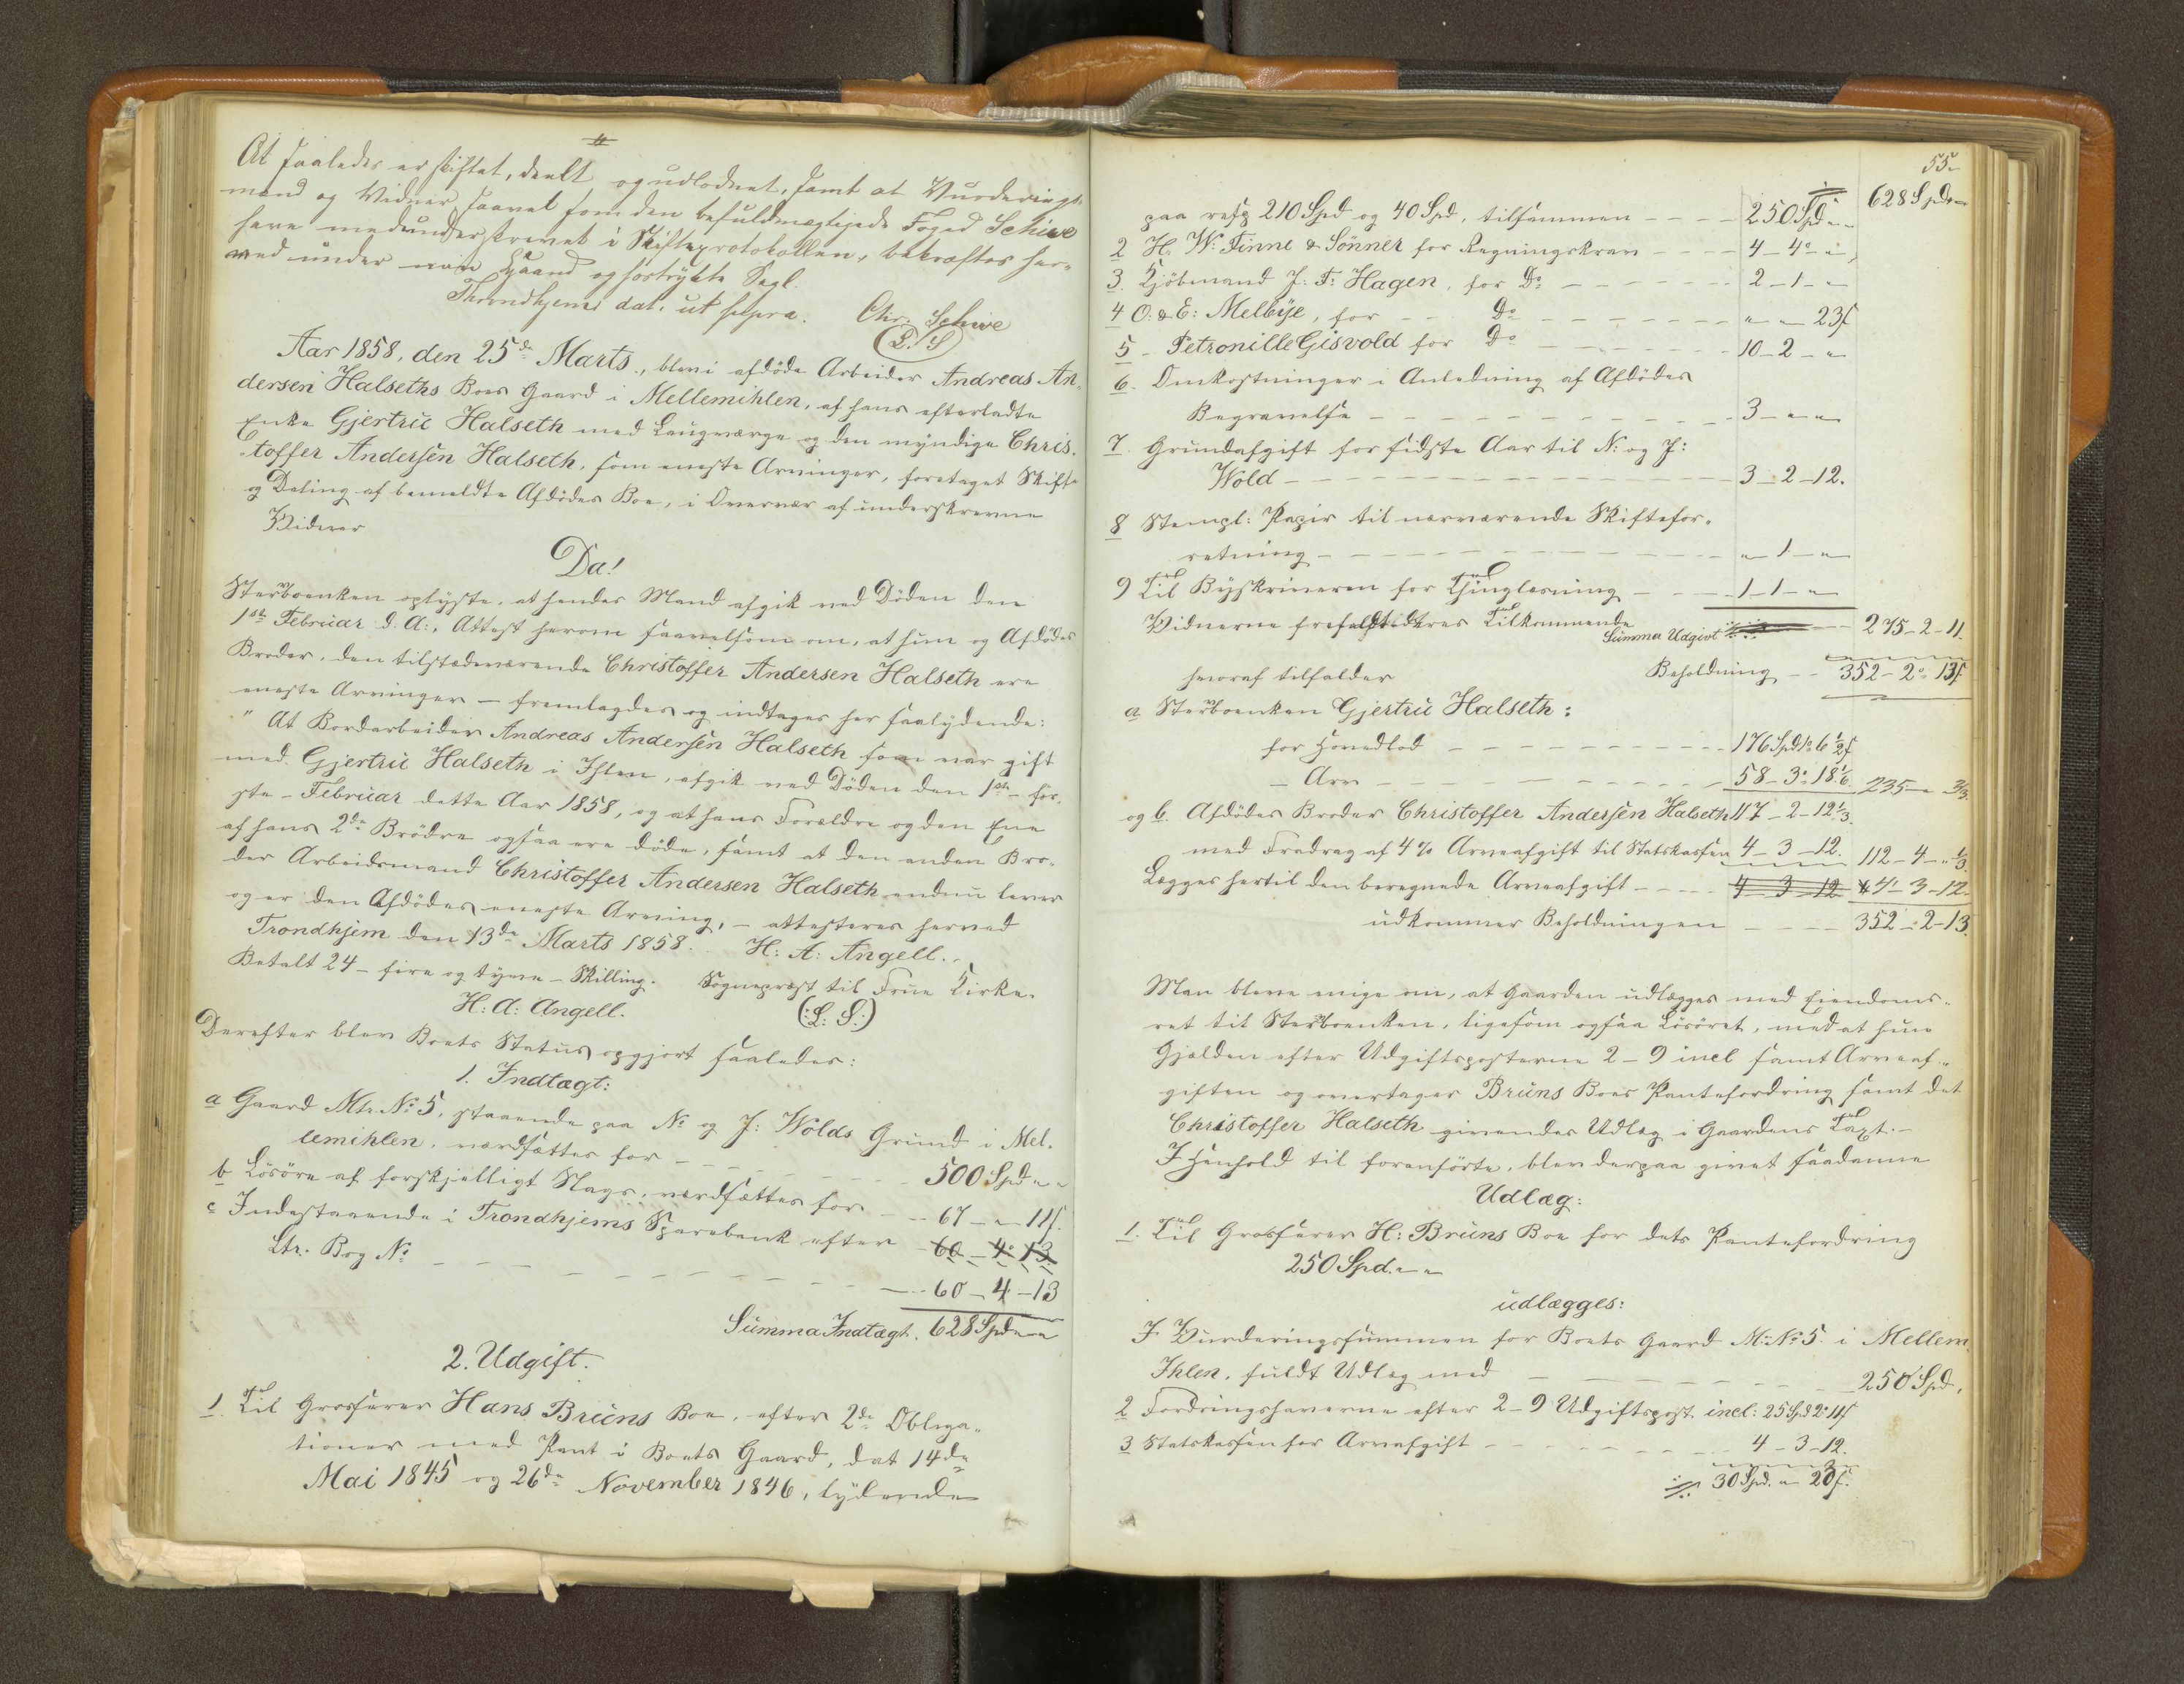 At saaledes er skiftet, deelt og udlodnet, samt at Vurderings-
mænd og Vidner saavel som den befuldmægtigede Foged Schive
have medunderskrevet i Skifteprotokollen, bekræftes her-
ved under min Haand og hostrykte Segl.
Throndhjem dat. ut supra. Chr. Schive
(L. S)
Aar 1858, den 25de Marts, blev i afdøde Arbeider Andreas An-
dersen Halseths Boes Gaard i Mellemihlen, af hans efterladte
Enke Gjertru Halseth med Laugværge og den myndige Chris-
toffer Andersen Halseth, som eneste Arvinger, foretaget Skifte
og Deling af bemeldte Afdødes Boe, i Overvær af underskrevne
Vidner
Da!
Sterboenken oplyste, at hendes Mand afgik ved Døden den
1ste Februar d. A:, Attest herom saavelsom om, at hun og Afdødes
Broder, den tilstædeværende Christoffer Andersen Halseth ere
eneste Arvinger – fremlagdes og indtages her saalydende:
" At Bordarbeider Andreas Andersen Halseth som var gift
med Gjertru Halseth i Ihlen, afgik ved Døden den 1ste – før-
ste – Februar dette Aar 1858, og at hans Forældre og den Ene
af hans 2de Brødre ogsaa ere døde, samt at den anden Bro-
der Arbeidsmand Christoffer Andersen Halseth endnu lever
og er den Afdødes eneste Arving, – attesteres herved
Trondhjem den 13de Marts 1858. H: A: Angell.
Betalt 24 – fire og tyve – Skilling. Sogneprest til Frue Kirke.
H: A: Angell. (:L: S:)
Derefter blev Boets Status opgjort saaledes:
1. Indtægt:
a Gaard Mtr. No 5, staaende paa N: og J: Wolds Grund i Mel-
lemihlen, værdsættes for – – – 500 Spd " "
b Løsøre af forskjelligt Slags, værdsættes for – – 67 – " – 11 s.
c Indestaaende i Trondhjems Sparebank efter – 60 – 4 – 13
Ctr. Bog No – – – 60 – 4 – 13
Summa Indtægt. 628 Spd " "
2. Udgift.
1. Til Grosserer Hans Bruns Boe, efter 2de Obliga-
tioner med Pant i Boets Gaard, dat 14de
Mai 1845 og 26de November 1846, lydende
55.
628 Spd " "
paa resp 210 Spd og 40 Spd, tilsammen – – – 250 Spd " "
2 H. W: Finne & Sønner for Regningskrav – – – 4 – 4 – "
3. Kjøbmand J: F: Hagen, for Do – – – 2 – 1 – "
4 O: & E: Melbye, for – – Do – – – " – " 23 s
5 – Petronille Gisvold for Do – – – 10 – 2 – "
6. Omkostninger i Anledning af Afdødes
Begravelse – – – 3 – " "
7. Grundafgift for sidste Aar til N: og J:
Wold – – – 3 – 2 – 12.
8 Stempl: Papir til nærværende Skiftefor-
retning – – – " – 1 – "
9 Til Byskriveren for Thinglæsning – – – 1 – 1 – "
Vidnerne frafaldt deres Tilkommende
Summa Udgivt – – 275 – 2 – 11.
Beholdning – – 352 – 2 – 13 s
hvoraf tilfalder
a Sterboenken Gjertru Halseth:
for Hovedlod – – – 176 Spd 1 – 6 1/2 s
– Arv – – – 58 – 3 – 18 1/6. 235 – " 2/3.
og b. Afdødes Broder Christoffer Andersen Halseth 117 – 2 – 12 1/3.
med Fradrag af 4 % Arveafgift til Statskassen 4 – 3 – 12. 112 – 4 – " 1/3
Lægges hertil den beregnede Arveafgift – – – 4 3 12 4 – 3 – 12.
udkommer Beholdningen – – – 352 – 2 – 13.
Man bleve enige om, at Gaarden udlægges med Eiendoms-
ret til Sterboenken, ligesom ogsaa Løsøret, mod at hun
Gjælden efter Udgiftsposterne 2 – 9 incl samt Arveaf-
giften og overtager Bruns Boes Pantefordring samt det
Christoffer Halseth givendes Udlæg i Gaardens Taxt. –
I Henhold til foranførte, blev derpaa givet saadanne
Udlæg:
1. Til Grosserer H: Bruns Boe for dets Pantefordring
250 Spd. " "
udlægges:
I Vurderingssummen for Boets Gaard M: No 5. i Mellem
Ihlen, fuldt Udlæg med – – – 250 Spd,
2 Fordringshaverne efter 2 – 9 Udgiftspost incl: 25 Spd 2 11 s
3 Statskassen for Arveafgift – – – 4 – 3 – 12.
30 Spd. " 23 s.